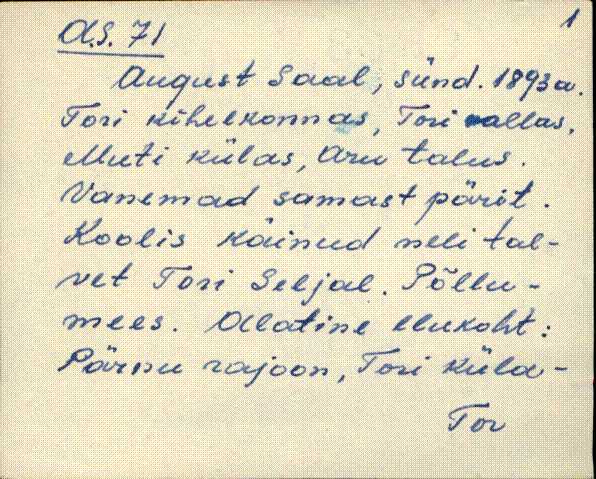 1
A.S. 71
August Saal, sünd. 1893 a.
Tori kihelkonnas, Tori vallas,
Muti külas, Aru talus.
Vanemad samast pärit.
Koolis käinud neli tal-
vet Tori Seljal. Põllu-
mees. Alatine elukoht:
Pärnu rajoon, Tori küla-
Tor